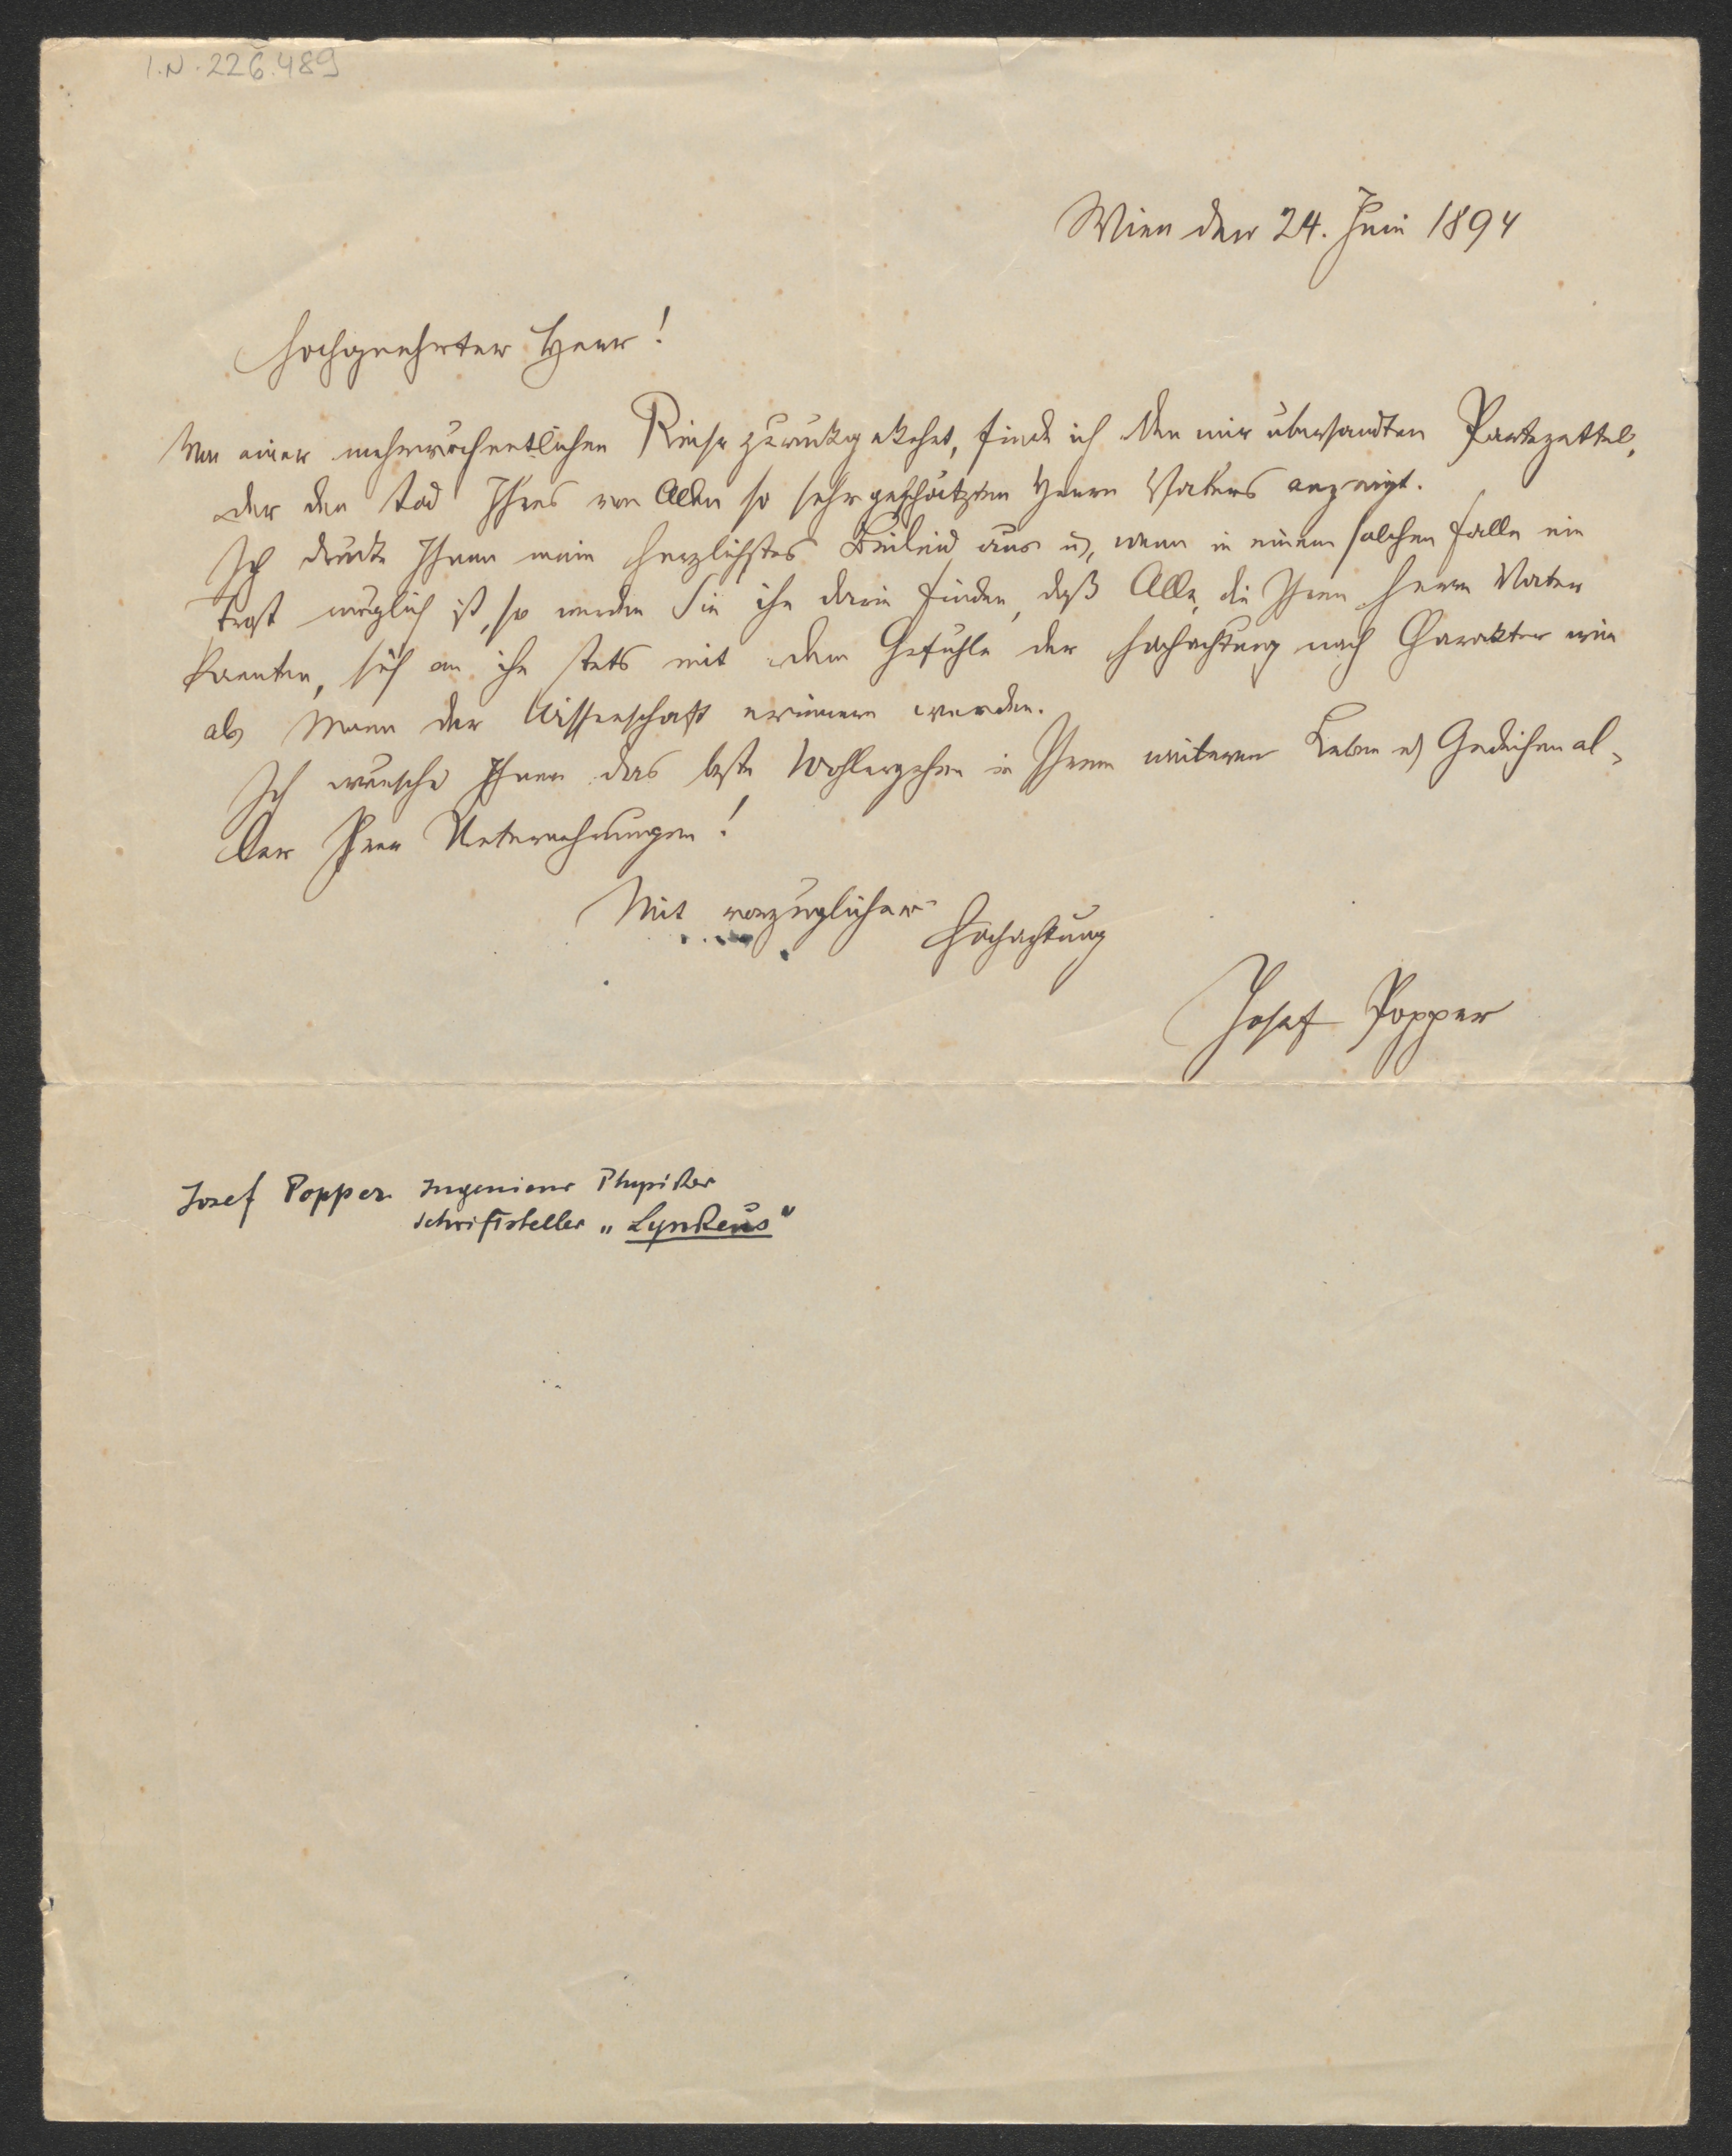 I.N. 226.489
Wien den 24. Juni 1894
Hochgeehrter Herr!
Von einer mehrwöchentlichen Reise zurückgekehrt, finde ich den mir übersandten Partezettel,
der den Tod Ihres von Allen so sehr geschätzten Herrn Vaters anzeigt.
Ich drücke Ihnen mein herzlichstes Beileid aus u, wenn in einem solchen Falle ein
Trost möglich ist, so werden Sie ihn darin finden, daß Alle, die Ihren Herrn Vater
kannten, sich an ihn stets mit dem Gefühle der Hochachtung nach Charakter wie
als Mann der Wissenschaft erinnern werden.
Ich wünsche Ihnen das beste Wohlergehen in Ihrem weiteren Leben u Gedeihen al-
ler Ihrer Unternehmungen!
Mit vorzüglicher
Hochachtung
Josef Popper
Josef Popper Ingenieur Physiker
Schriftsteller „Lynkeus"